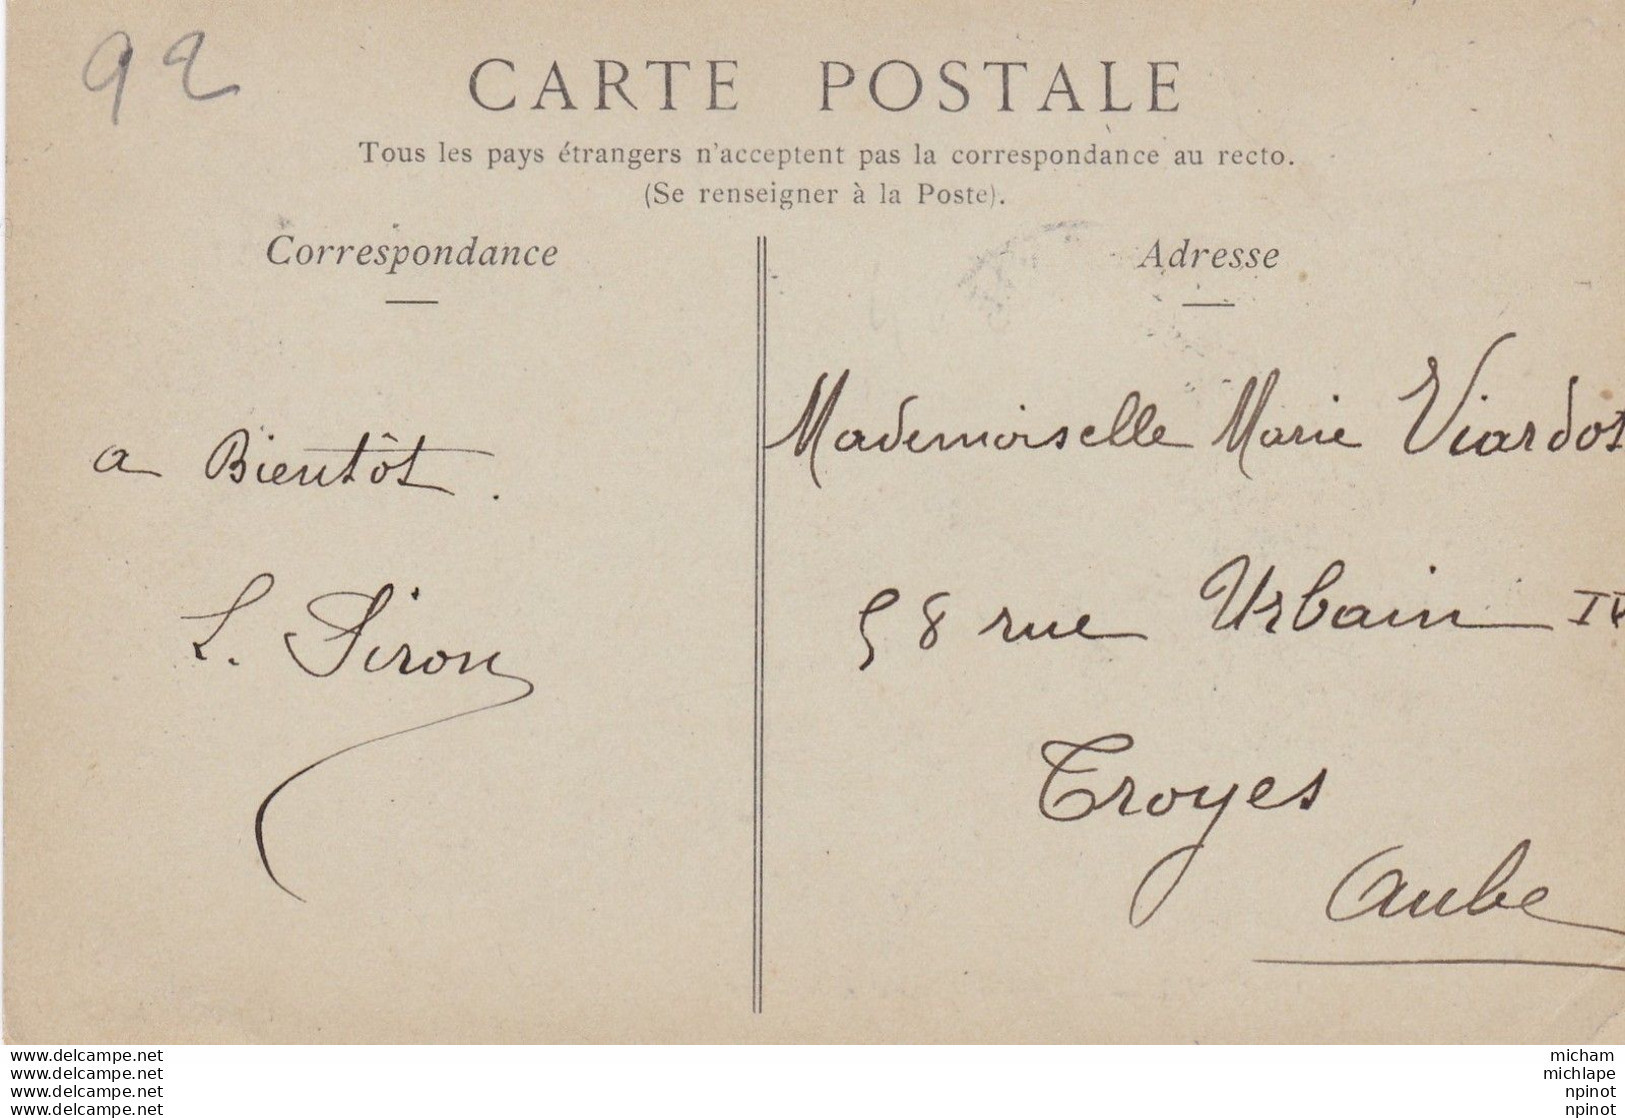 92
CARTE POSTALE
Tous les pays étrangers n'acceptent pas la correspondance au recto.
(Se renseigner à la Poste).
Correspondance
a Bientôt.
L. Siron
Adresse
Mademoiselle Marie Viardot
58 rue Urbain IV
Troyes
Aube
www.delcampe.net
www.delcampe.net
www.delcampe.net
www.delcampe.net
micham
michlape
npinot
npinot